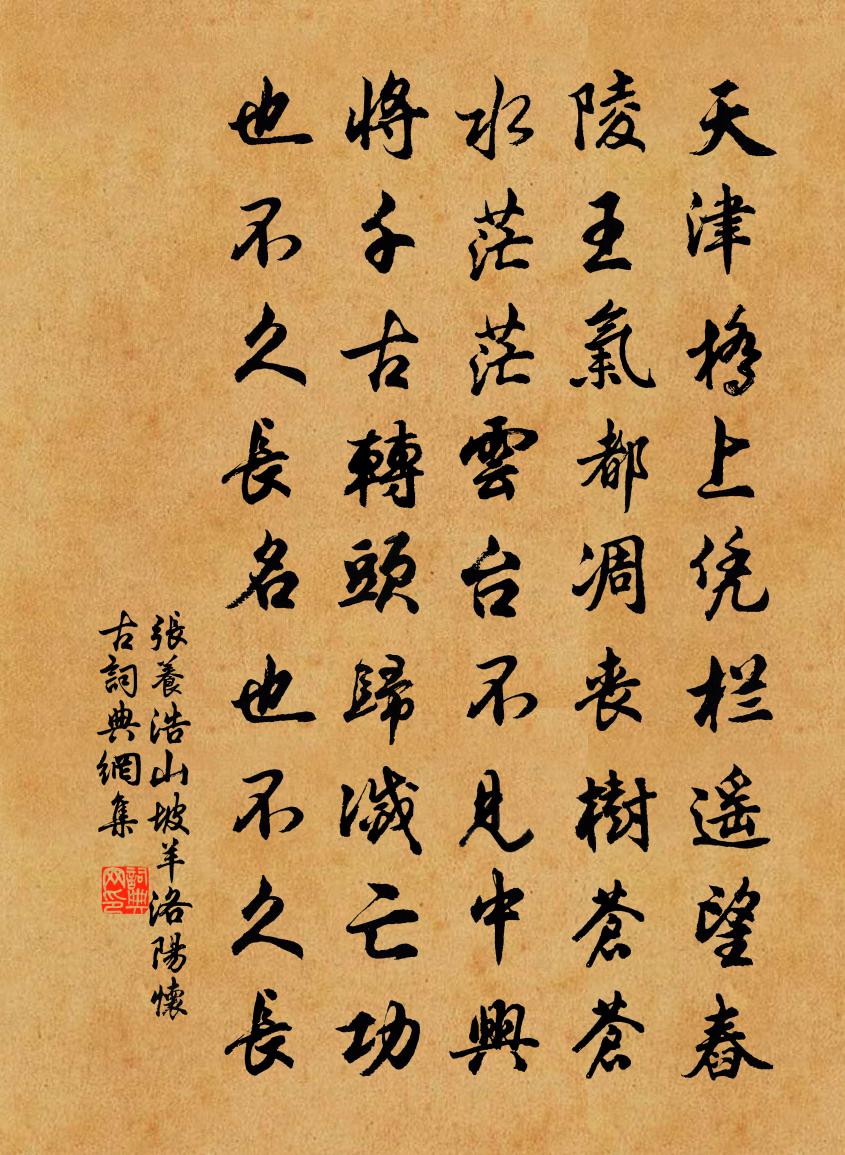 天津橋上凭栏遥望舂
陵王氣都凋喪樹蒼蒼
水茫茫雲台不見中興
將千古轉頭歸滅亡功
也不久長名也不久長
張養浩山坡羊洛陽懷
古詞典網集
詞典网印